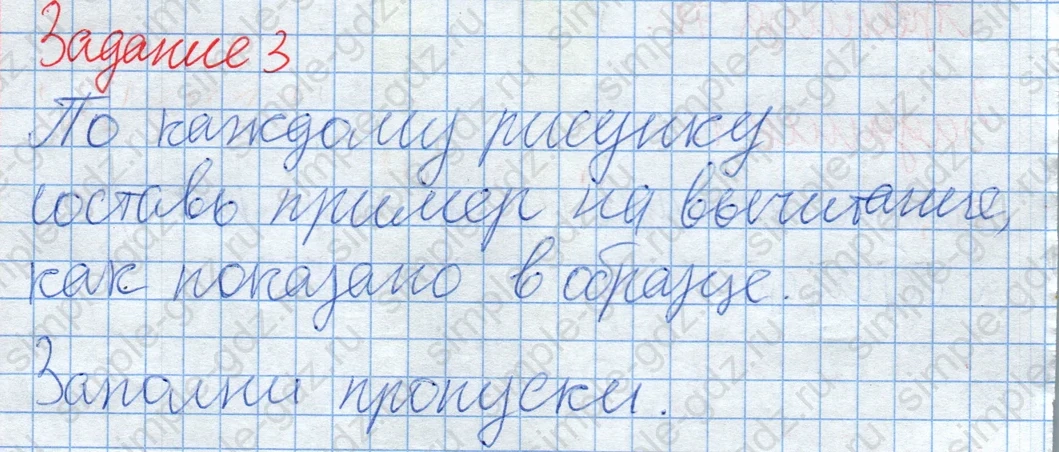 Задание 3
По каждому рисунку
составь пример на вычитание,
как показано в образце.
Заполни пропуски.
simple-gdz.ru